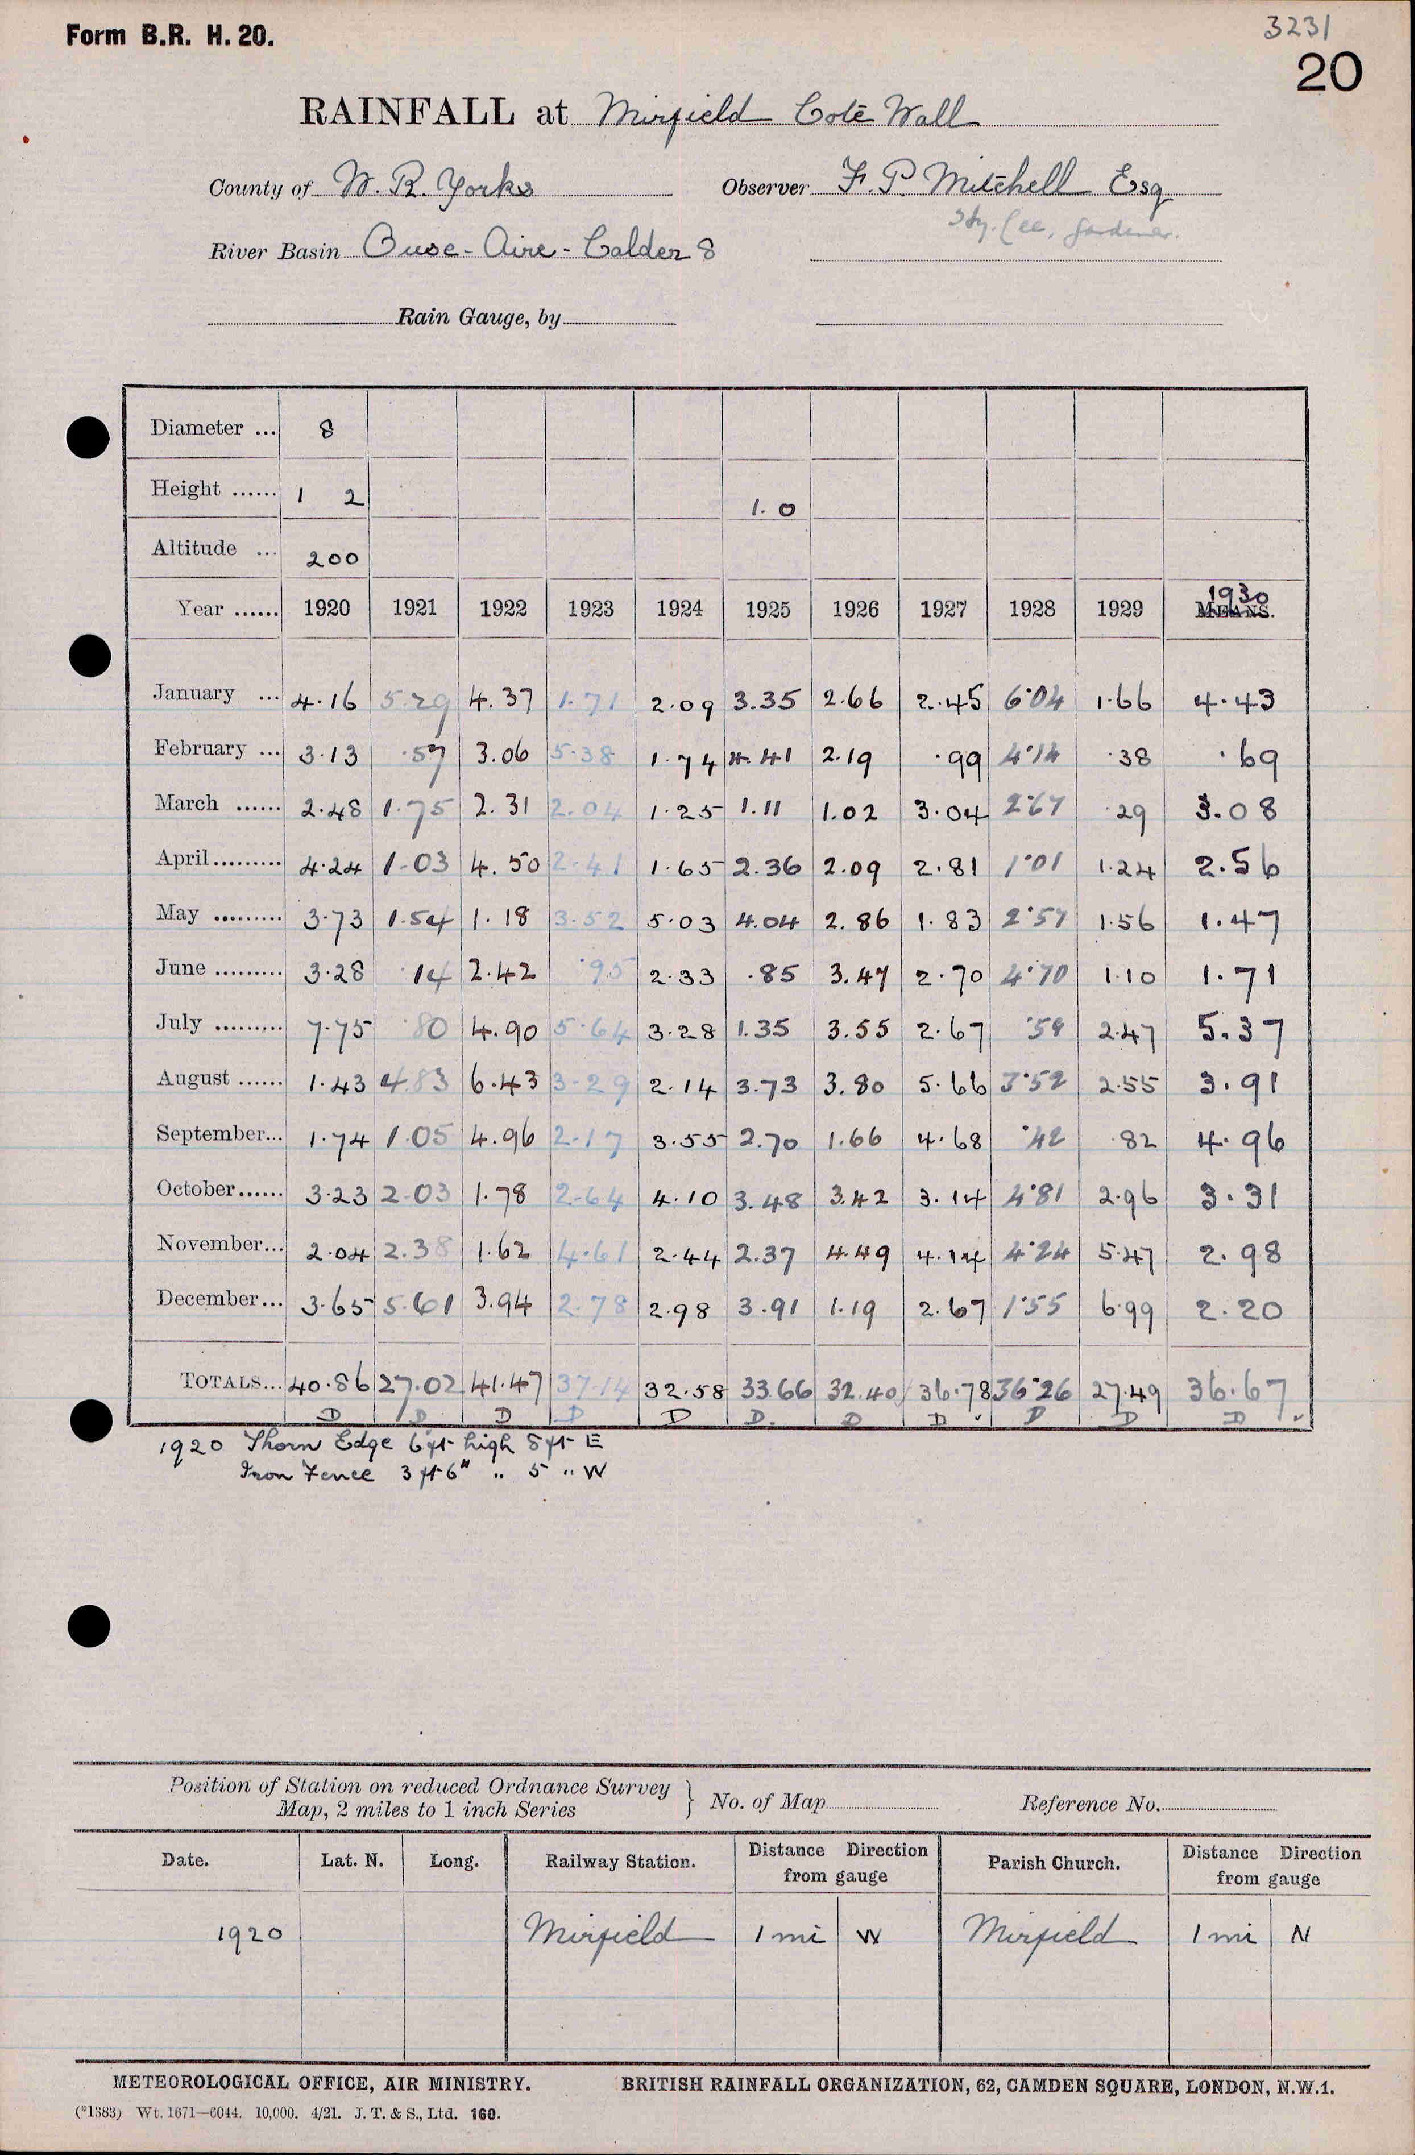 Form B.R. H. 20.
3231
20
RAINFALL at Mirfield Cote Wall
County of W. R. Yorks Observer F. P. Mitchell Esq
Hy. Lee, gardener.
River Basin Ouse - Aire - Calder 8
Rain Gauge, by
Diameter ... 8
Height ...... 1 2 1.0
Altitude ... 200
Year ...... 1920 1921 1922 1923 1924 1925 1926 1927 1928 1929 MEANS. 1930
January ... 4.16 5.29 4.37 1.71 2.09 3.35 2.66 2.45 6.04 1.66 4.43
February ... 3.13 .57 3.06 5.38 1.74 4.41 2.19 .99 4.14 .38 .69
March ...... 2.48 1.75 2.31 2.04 1.25 1.11 1.02 3.04 2.67 .29 3.08
April ......... 4.24 1.03 4.50 2.41 1.65 2.36 2.09 2.81 1.01 1.24 2.56
May ......... 3.73 1.54 1.18 3.52 5.03 4.04 2.86 1.83 2.57 1.56 1.47
June ......... 3.28 .14 2.42 .95 2.33 .85 3.47 2.70 4.70 1.10 1.71
July ......... 7.75 .80 4.90 5.64 3.28 1.35 3.55 2.67 .59 2.47 5.37
August ...... 1.43 4.83 6.43 3.29 2.14 3.73 3.80 5.66 3.52 2.55 3.91
September... 1.74 1.05 4.96 2.17 3.55 2.70 1.66 4.68 .42 .82 4.96
October...... 3.23 2.03 1.78 2.64 4.10 3.48 3.42 3.14 4.81 2.96 3.31
November... 2.04 2.38 1.62 4.61 2.44 2.37 4.49 4.14 4.24 5.47 2.98
December... 3.65 5.61 3.94 2.78 2.98 3.91 1.19 2.67 1.55 6.99 2.20
TOTALS... 40.86 27.02 41.47 37.14 32.58 33.66 32.40 36.78 36.26 27.49 36.67
D D D D D D. D D D D D
1920 Thorn Edge 6 ft high 8 ft E
Iron Fence 3 ft 6" " 5 " W
Position of Station on reduced Ordnance Survey
Map, 2 miles to 1 inch Series } No. of Map Reference No.
Date. Lat. N. Long. Railway Station. Distance Direction from gauge Parish Church. Distance Direction from gauge
1920 Mirfield 1 mi W Mirfield 1 mi N
METEOROLOGICAL OFFICE, AIR MINISTRY. BRITISH RAINFALL ORGANIZATION, 62, CAMDEN SQUARE, LONDON, N.W.1.
(*1383) Wt. 1671—6044. 10,000. 4/21. J. T. & S., Ltd. 160.